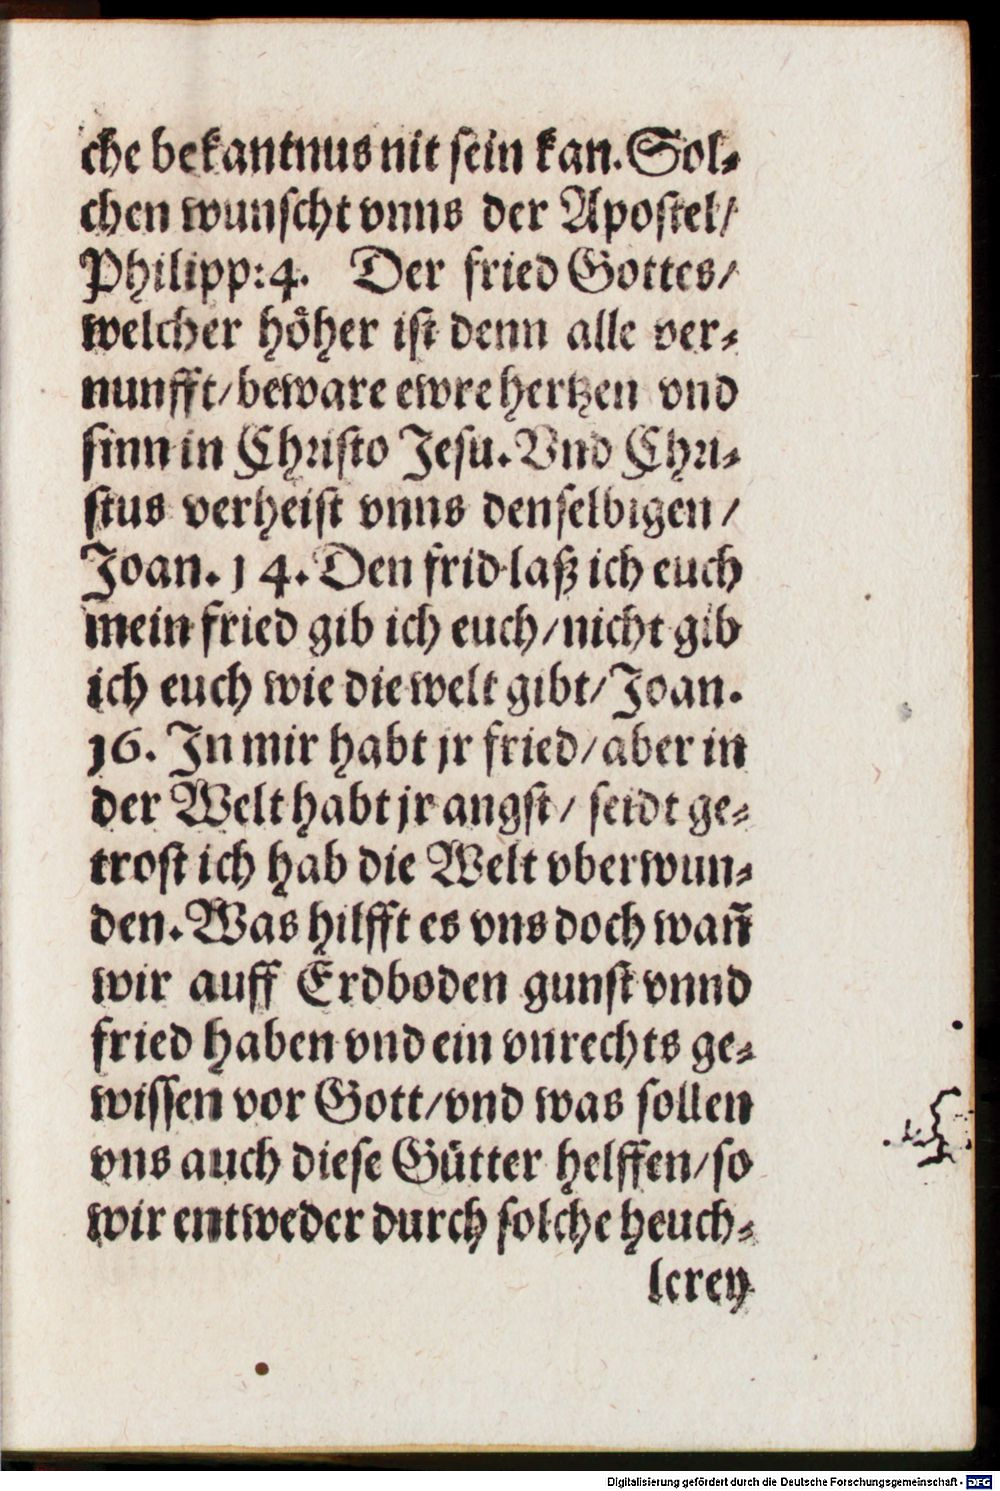 che bekantnus nit sein kan. Sol⸗
chen wunscht vnns der Apostel/
Philipp: 4. Der fried Gottes/
welcher höher ist denn alle ver⸗
nunfft/ beware ewre hertzen vnd
sinn in Christo Jesu. Vnd Chri⸗
stus verheist vnns denselbigen/
Joan. 14. Den frid laß ich euch
mein fried gib ich euch/ nicht gib
ich euch wie die welt gibt/ Joan.
16. In mir habt jr fried/ aber in
der Welt habt jr angst/ seidt ge⸗
trost ich hab die Welt vberwun⸗
den. Was hilfft es vns doch wañ
wir auff Erdboden gunst vnnd
fried haben vnd ein vnrechts ge⸗
wissen vor Gott/ vnd was sollen
vns auch diese Gütter helffen/ so
wir entweder durch solche heuch⸗
lerey
Digitalisierung gefördert durch die Deutsche Forschungsgemeinschaft - DFG